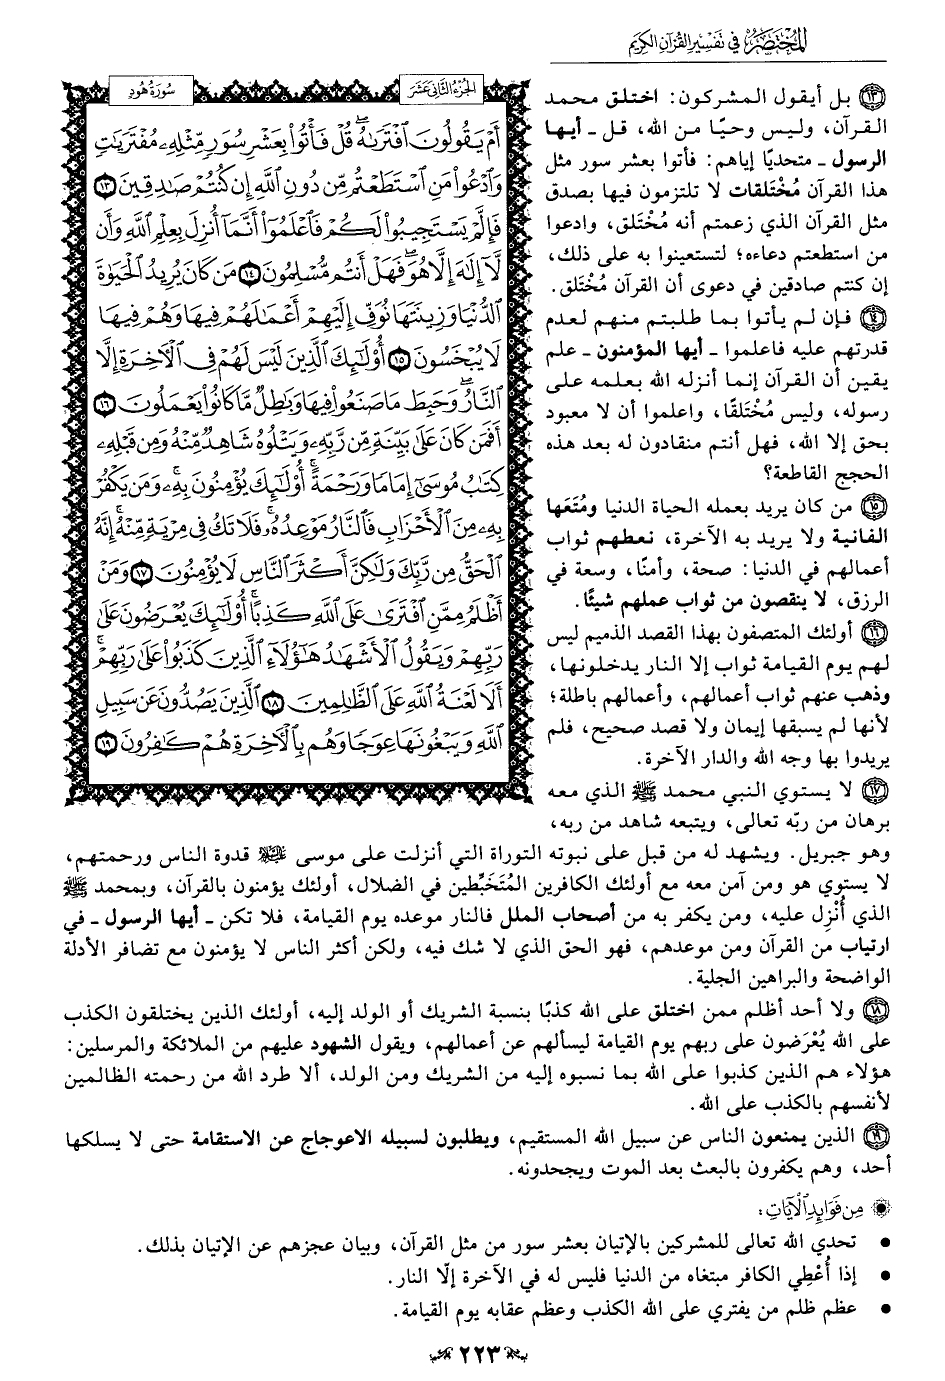 المختصر في تفسير القرآن الكريم
سورة هود
الجزء الثاني عشر
أَمْ يَقُولُونَ افْتَرَىٰهُ ۖ قُلْ فَأْتُوا۟ بِعَشْرِ سُوَرٍ مِّثْلِهِۦ مُفْتَرَيَٰتٍ
وَادْعُوا۟ مَنِ اسْتَطَعْتُم مِّن دُونِ اللَّهِ إِن كُنتُمْ صَٰدِقِينَ ١٣
فَإِلَّمْ يَسْتَجِيبُوا۟ لَكُمْ فَاعْلَمُوٓا۟ أَنَّمَآ أُنزِلَ بِعِلْمِ اللَّهِ وَأَن
لَّآ إِلَٰهَ إِلَّا هُوَ ۖ فَهَلْ أَنتُم مُّسْلِمُونَ ١٤ مَن كَانَ يُرِيدُ الْحَيَوٰةَ
الدُّنْيَا وَزِينَتَهَا نُوَفِّ إِلَيْهِمْ أَعْمَٰلَهُمْ فِيهَا وَهُمْ فِيهَا
لَا يُبْخَسُونَ ١٥ أُو۟لَٰٓئِكَ الَّذِينَ لَيْسَ لَهُمْ فِي الْءَاخِرَةِ إِلَّا
النَّارُ ۖ وَحَبِطَ مَا صَنَعُوا۟ فِيهَا وَبَٰطِلٌ مَّا كَانُوا۟ يَعْمَلُونَ ١٦
أَفَمَن كَانَ عَلَىٰ بَيِّنَةٍ مِّن رَّبِّهِۦ وَيَتْلُوهُ شَاهِدٌ مِّنْهُ وَمِن قَبْلِهِۦ
كِتَٰبُ مُوسَىٰٓ إِمَامًا وَرَحْمَةً ۚ أُو۟لَٰٓئِكَ يُؤْمِنُونَ بِهِۦ ۚ وَمَن يَكْفُرْ
بِهِۦ مِنَ الْأَحْزَابِ فَالنَّارُ مَوْعِدُهُۥ ۚ فَلَا تَكُ فِي مِرْيَةٍ مِّنْهُ ۚ إِنَّهُ
الْحَقُّ مِن رَّبِّكَ وَلَٰكِنَّ أَكْثَرَ النَّاسِ لَا يُؤْمِنُونَ ١٧ وَمَنْ
أَظْلَمُ مِمَّنِ افْتَرَىٰ عَلَى اللَّهِ كَذِبًا ۚ أُو۟لَٰٓئِكَ يُعْرَضُونَ عَلَىٰ
رَبِّهِمْ وَيَقُولُ الْأَشْهَٰدُ هَٰٓؤُلَآءِ الَّذِينَ كَذَبُوا۟ عَلَىٰ رَبِّهِمْ ۚ
أَلَا لَعْنَةُ اللَّهِ عَلَى الظَّٰلِمِينَ ١٨ الَّذِينَ يَصُدُّونَ عَن سَبِيلِ
اللَّهِ وَيَبْغُونَهَا عِوَجًا وَهُم بِالْءَاخِرَةِ هُمْ كَٰفِرُونَ ١٩
١٣ بل أيقول المشركون: اختلق محمد
القرآن، وليس وحيًا من الله، قل ـ أيها
الرسول ـ متحديًا إياهم: فأتوا بعشر سور مثل
هذا القرآن مُخْتَلَقات لا تلتزمون فيها بصدق
مثل القرآن الذي زعمتم أنه مُخْتَلق، وادعوا
من استطعتم دعاءه؛ لتستعينوا به على ذلك،
إن كنتم صادقين في دعوى أن القرآن مُخْتَلق.
١٤ فإن لم يأتوا بما طلبتم منهم لعدم
قدرتهم عليه فاعلموا ـ أيها المؤمنون ـ علم
يقين أن القرآن إنما أنزله الله بعلمه على
رسوله، وليس مُخْتَلقًا، واعلموا أن لا معبود
بحق إلا الله، فهل أنتم منقادون له بعد هذه
الحجج القاطعة؟
١٥ من كان يريد بعمله الحياة الدنيا ومُتَعَها
الفانية ولا يريد به الآخرة، نعطهم ثواب
أعمالهم في الدنيا: صحة، وأمنًا، وسعة في
الرزق، لا ينقصون من ثواب عملهم شيئًا.
١٦ أولئك المتصفون بهذا القصد الذميم ليس
لهم يوم القيامة ثواب إلا النار يدخلونها،
وذهب عنهم ثواب أعمالهم، وأعمالهم باطلة؛
لأنها لم يسبقها إيمان ولا قصد صحيح، فلم
يريدوا بها وجه الله والدار الآخرة.
١٧ لا يستوي النبي محمد ﷺ الذي معه
برهان من ربّه تعالى، ويتبعه شاهد من ربه،
وهو جبريل. ويشهد له من قبل على نبوته التوراة التي أنزلت على موسى عليه السلام قدوة الناس ورحمتهم،
لا يستوي هو ومن آمن معه مع أولئك الكافرين المُتَخَبِّطين في الضلال، أولئك يؤمنون بالقرآن، وبمحمد ﷺ
الذي أُنْزِل عليه، ومن يكفر به من أصحاب الملل فالنار موعده يوم القيامة، فلا تكن ـ أيها الرسول ـ في
ارتياب من القرآن ومن موعدهم، فهو الحق الذي لا شك فيه، ولكن أكثر الناس لا يؤمنون مع تضافر الأدلة
الواضحة والبراهين الجلية.
١٨ ولا أحد أظلم ممن اختلق على الله كذبًا بنسبة الشريك أو الولد إليه، أولئك الذين يختلقون الكذب
على الله يُعْرَضون على ربهم يوم القيامة ليسألهم عن أعمالهم، ويقول الشهود عليهم من الملائكة والمرسلين:
هؤلاء هم الذين كذبوا على الله بما نسبوه إليه من الشريك ومن الولد، ألا طرد الله من رحمته الظالمين
لأنفسهم بالكذب على الله.
١٩ الذين يمنعون الناس عن سبيل الله المستقيم، ويطلبون لسبيله الاعوجاج عن الاستقامة حتى لا يسلكها
أحد، وهم يكفرون بالبعث بعد الموت ويجحدونه.
من فوائد الآيات:
• تحدي الله تعالى للمشركين بالإتيان بعشر سور من مثل القرآن، وبيان عجزهم عن الإتيان بذلك.
• إذا أُعْطِي الكافر مبتغاه من الدنيا فليس له في الآخرة إلّا النار.
• عظم ظلم من يفتري على الله الكذب وعظم عقابه يوم القيامة.
٢٢٣